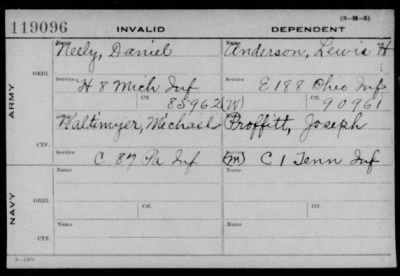 (3-H-3)
119096 INVALID DEPENDENT
Name Neely, Daniel Name Anderson, Lewis H
ARMY
ORIG. Service H 8 Mich Inf Service E 188 Ohio Inf
Ctf. 85962 (W) Ctf. 90961
Waltimyer, Michael Proffitt, Joseph
CTF. Service C 87 Pa Inf Service (M) C 1 Tenn Inf
NAVY
Name Name
ORIG. Ctf. Ctf.
Name Name
CTF.